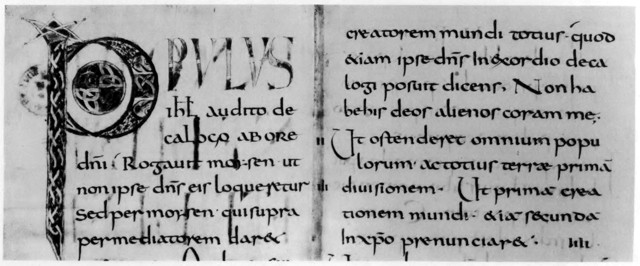 POPULUS
ihł audito de
calogo ab ore
dn̄i· Rogauit moysen ut
non ipse dn̄s eis loqueretur
sed per moysen· qui supra
per mediatorem dar&
creatorem mundi totius· quod
&iam ipse dn̄s In exordio deca
logi posuit dicens, Non ha
bebis deos alienos coram me;
Ut ostenderet omnium popu
lorum· ac totius terrae primā
diuisionem· Ut prima crea
tionem mundi· &ia secunda
In xp̄o prenunciar&· IIII